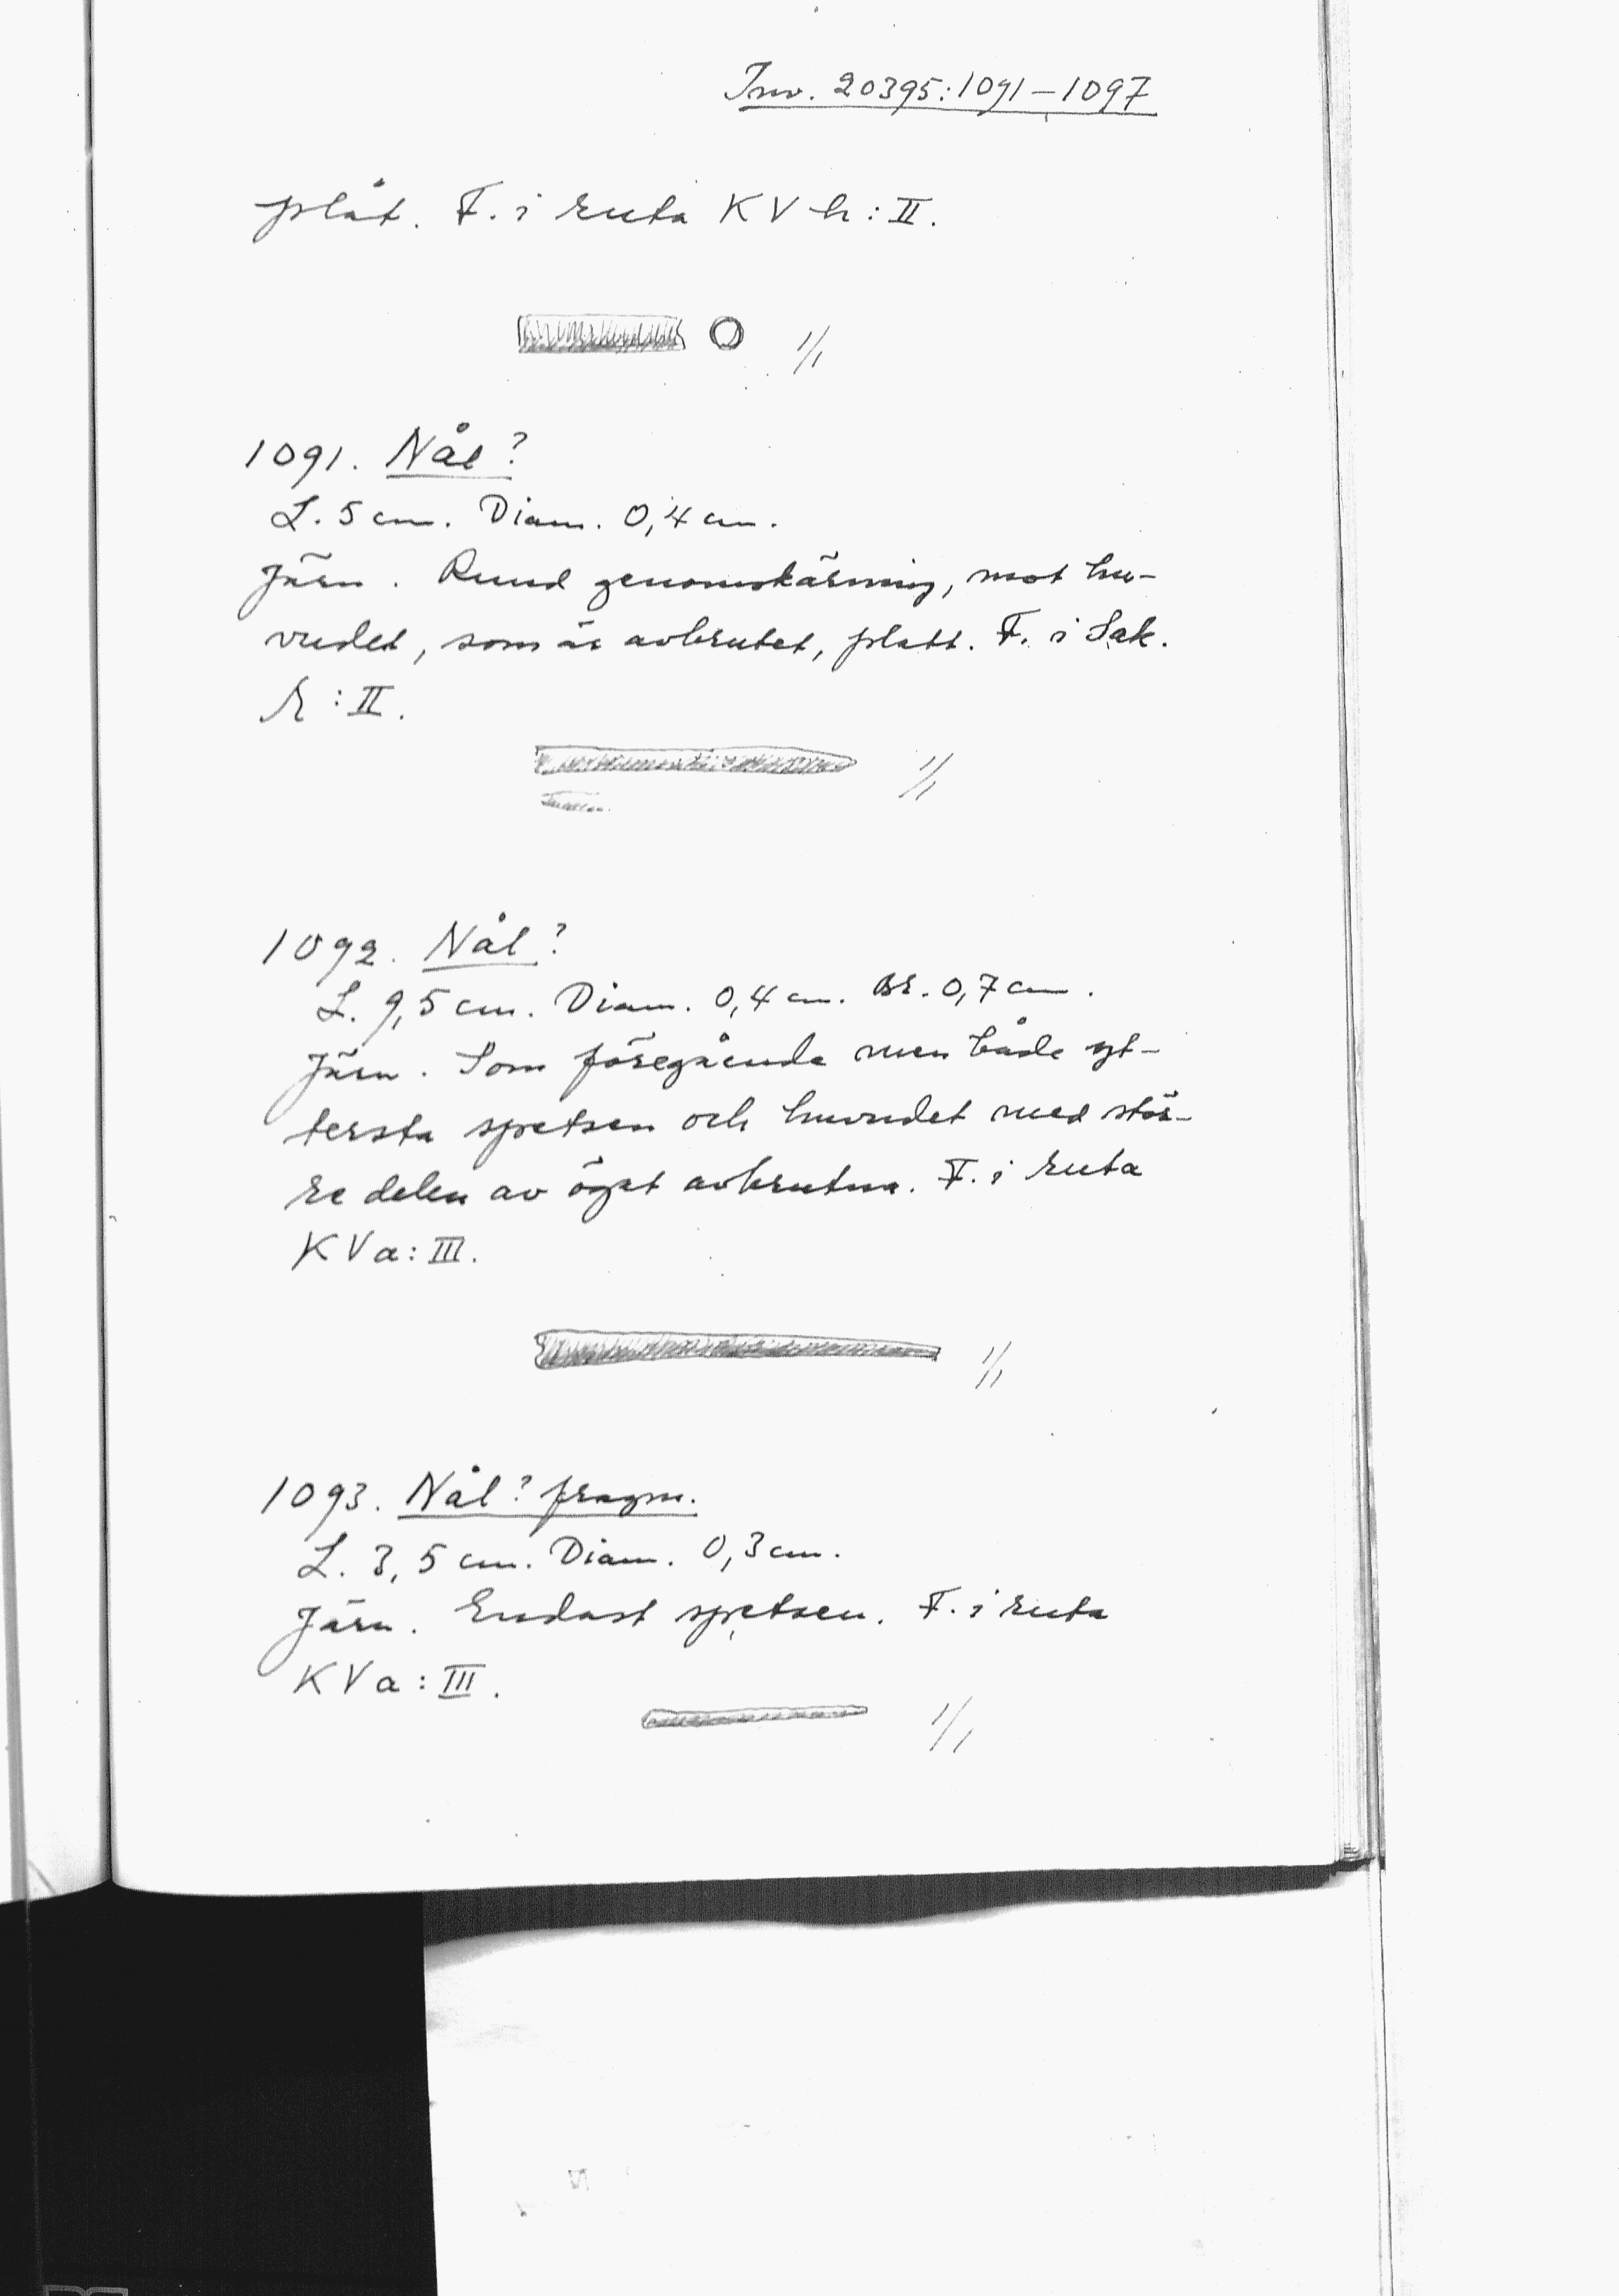 Inv. 20395:1091–1097
plåt. F. i ruta KV h:II.
1/1
1091. Nål?
L. 5 cm. Diam. 0,4 cm.
Järn. Rund genomskärning, mot hu-
vudet, som är avbrutet, platt. F. i Sak.
R:II.
1/1
1092. Nål?
L. 9,5 cm. Diam. 0,4 cm. Br. 0,7 cm.
Järn. Som föregående men både yt-
tersta spetsen och huvudet med stör-
re delen av ögat avbrutna. F. i ruta
KVa:III.
1/1
1093. Nål? fragm.
L. 3,5 cm. Diam. 0,3 cm.
Järn. Endast spetsen. F. i ruta
KVa:III.
1/1